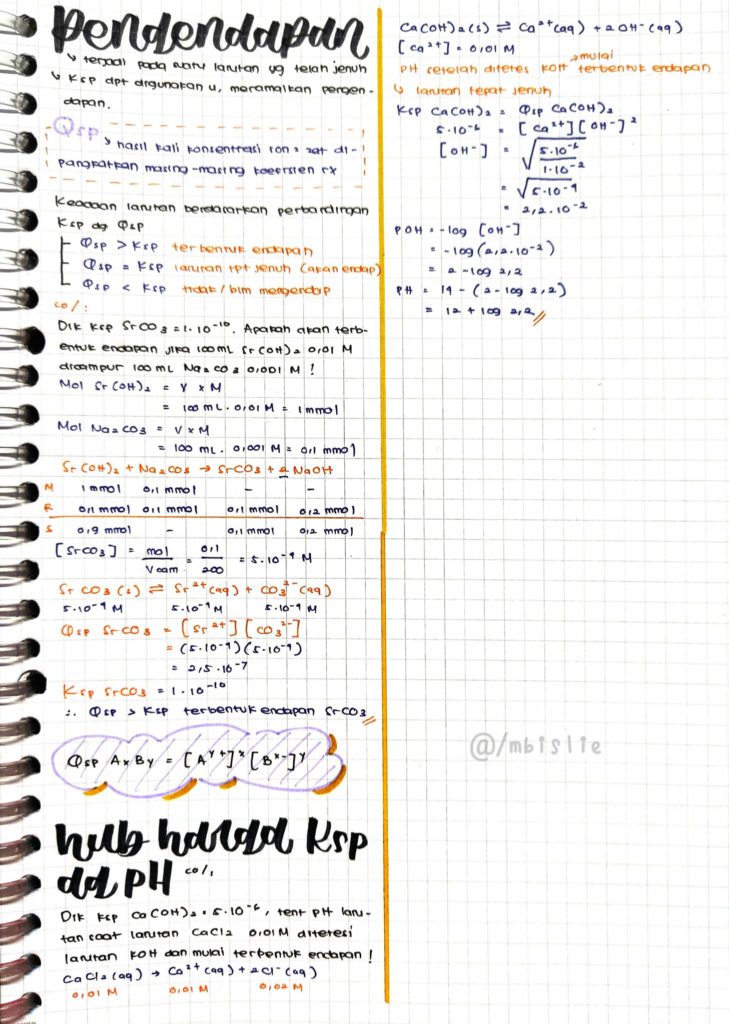 Pengendapan
↳ terjadi pada suatu larutan yg telah jenuh
↳ Ksp dpt digunakan u, meramalkan pengen-
dapan.
Qsp
↳ hasil kali konsentrasi ion² zat di-
pangkatkan masing-masing koefisien rx
Keadaan larutan berdasarkan perbandingan
Ksp dg Qsp
Qsp > Ksp terbentuk endapan
Qsp = Ksp larutan tpt jenuh (akan endap)
Qsp < Ksp tidak / blm mengendap
co/:
Dik Ksp SrCO3 = 1.10⁻¹⁰. Apakah akan terb-
entuk endapan jika 100 mL Sr(OH)2 0,01 M
dicampur 100 mL Na2CO3 0,001 M !
Mol Sr(OH)2 = V x M
= 100 mL . 0,01 M = 1 mmol
Mol Na2CO3 = V x M
= 100 mL . 0,001 M = 0,1 mmol
Sr(OH)2 + Na2CO3 → SrCO3 + 2 NaOH
M 1 mmol 0,1 mmol - -
R 0,1 mmol 0,1 mmol 0,1 mmol 0,2 mmol
S 0,9 mmol - 0,1 mmol 0,2 mmol
[SrCO3] = mol / V cam = 0,1 / 200 = 5.10⁻⁴ M
SrCO3 (s) ⇌ Sr²⁺ (aq) + CO3²⁻ (aq)
5.10⁻⁴ M 5.10⁻⁴ M 5.10⁻⁴ M
Qsp SrCO3 = [Sr²⁺] [CO3²⁻]
= (5.10⁻⁴) (5.10⁻⁴)
= 2,5.10⁻⁷
Ksp SrCO3 = 1.10⁻¹⁰
∴ Qsp > Ksp terbentuk endapan SrCO3
Qsp AxBy = [A^y+]^x [B^x-]^y
hub harga Ksp
dg pH co/:
Dik Ksp Ca(OH)2 = 5.10⁻⁶, tent pH laru-
tan saat larutan CaCl2 0,01 M ditetesi
larutan KOH dan mulai terbentuk endapan !
CaCl2 (aq) → Ca²⁺ (aq) + 2Cl⁻ (aq)
0,01 M 0,01 M 0,02 M
Ca(OH)2 (s) ⇌ Ca²⁺ (aq) + 2OH⁻ (aq)
[Ca²⁺] = 0,01 M
→ mulai
PH setelah ditetes KOH terbentuk endapan
↳ larutan tepat jenuh
Ksp Ca(OH)2 = Qsp Ca(OH)2
5.10⁻⁶ = [Ca²⁺] [OH⁻]²
[OH⁻] = √(5.10⁻⁶ / 1.10⁻²)
= √5.10⁻⁴
= 2,2.10⁻²
POH = -log [OH⁻]
= -log (2,2.10⁻²)
= 2 - log 2,2
PH = 14 - (2 - log 2,2)
= 12 + log 2,2
@/mbislie